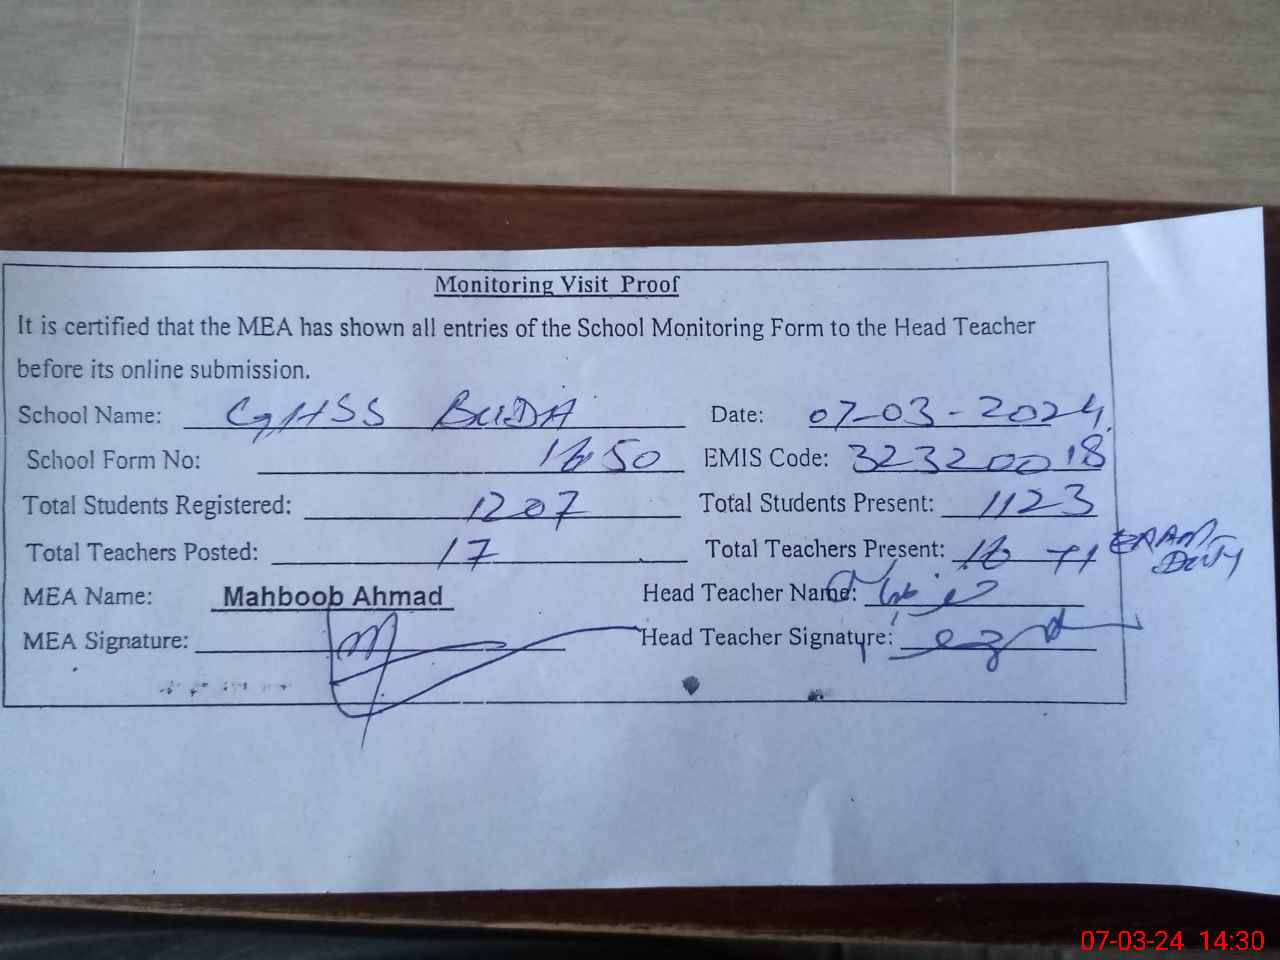 Monitoring Visit Proof
It is certified that the MEA has shown all entries of the School Monitoring Form to the Head Teacher
before its online submission.
School Name: GHSS BUDA Date: 07-03-2024
School Form No: 1650 EMIS Code: 32320018
Total Students Registered: 1207 Total Students Present: 1123
Total Teachers Posted: 17 Total Teachers Present: 16 +1 EXAM DUTY
MEA Name: Mahboob Ahmad Head Teacher Name:
MEA Signature: Head Teacher Signature:
07-03-24 14:30